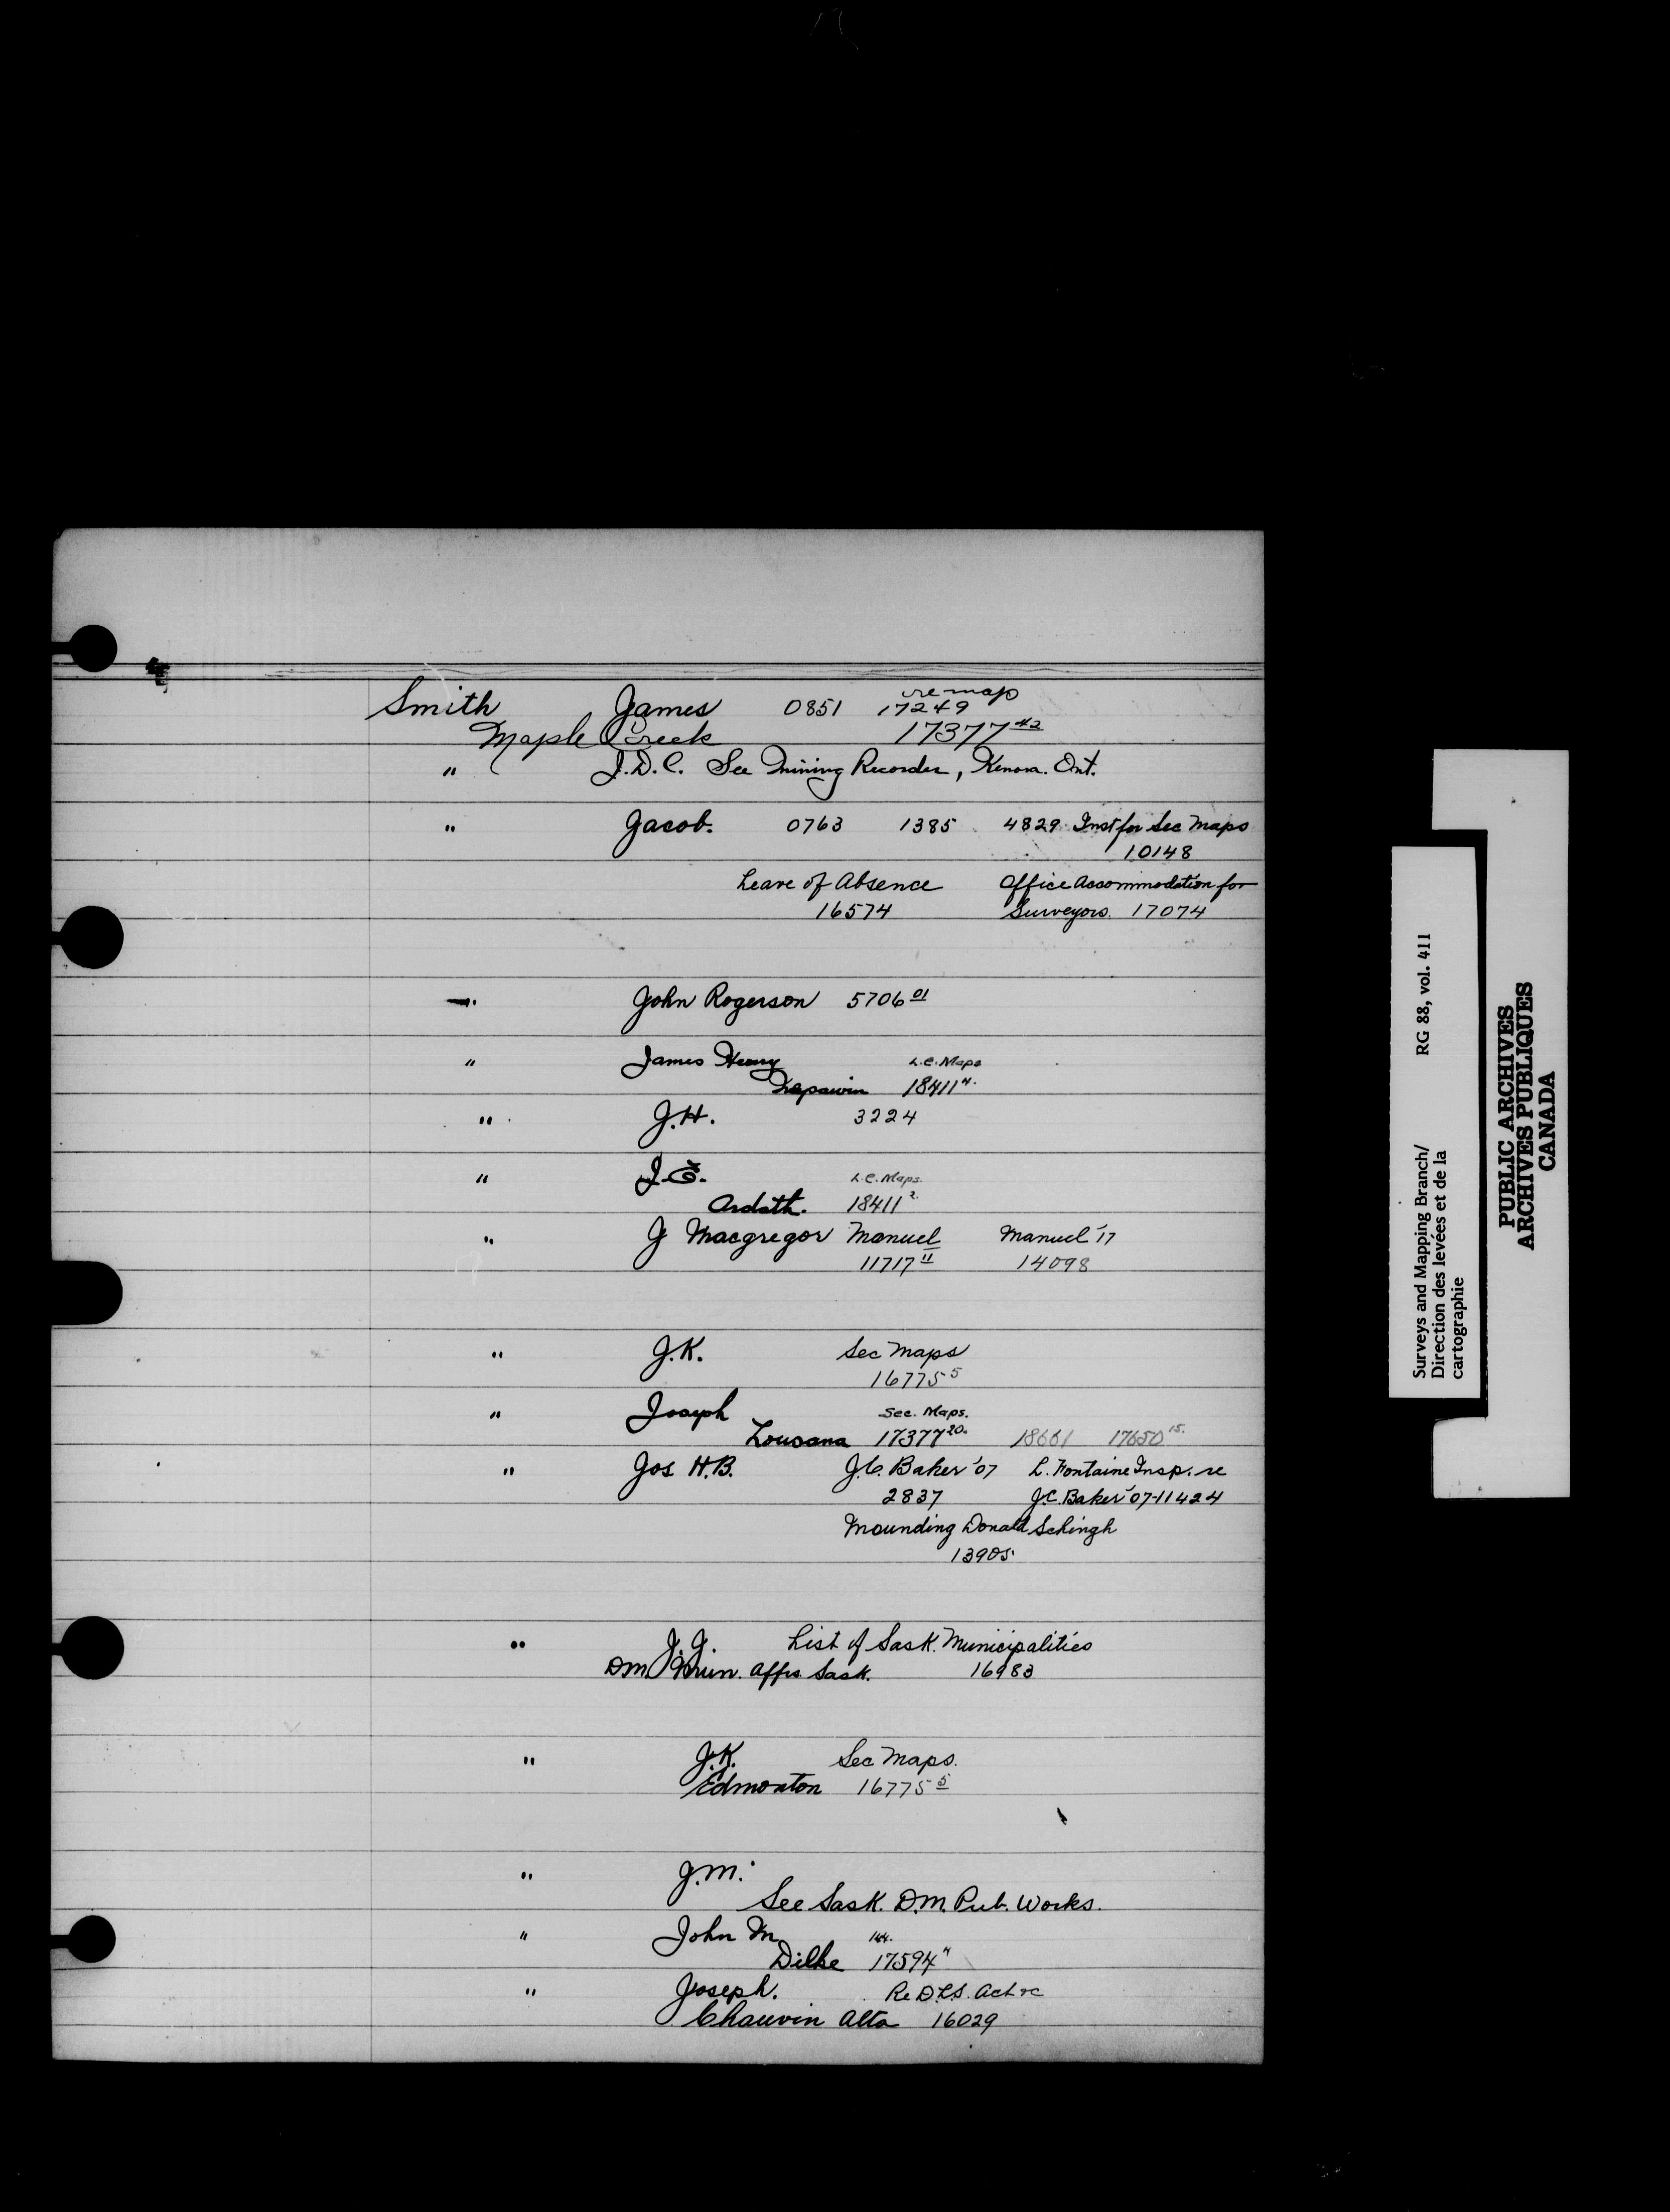 re map
Smith James 0851 17249
Maple Creek 17377 #2
" J.D.C. See Mining Recorder, Kenora. Ont.
" Jacob. 0763 1385 4829 Inst for Sec Maps
10148
Leave of Absence Office Accommodation for
16574 Surveyors. 17074
" John Rogerson 5706 01
" James Henry L.C. Maps
Nepawin 18411 4.
" J.H. 3224
" J.E. L.C. Maps.
Ardath. 18411 2.
" J Macgregor Manuel Manuel '17
11717 11 14098
" J.K. Sec Maps
16775 5
" Joseph Sec. Maps.
Lousana 17377 20. 18661 17650 15.
" Jos H.B. J.C. Baker '07 L. Fontaine Insp. re
2837 J.C. Baker '07-11424
Mounding Donald Schingh
13905
" J.J. List of Sask. Municipalities
D.M. Mun. Affrs Sask. 16983
" J.K. Sec Maps.
Edmonton 16775 5
" J.M.
See Sask. D.M. Pub. Works.
" John M
Dilke 17594 4
" Joseph. Re D.L.S. Act re
Chauvin Alta 16029
Surveys and Mapping Branch/ RG 88, vol. 411
Direction des levées et de la
cartographie
PUBLIC ARCHIVES
ARCHIVES PUBLIQUES
CANADA